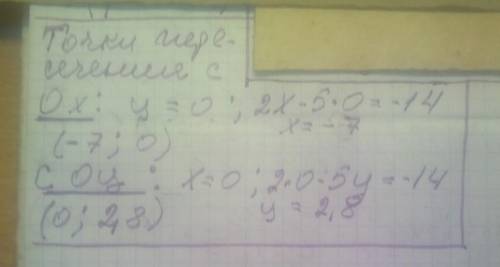 Точки пере-
сечения с
Ох: y = 0; 2x-5·0=-14
x=-7
(-7; 0)
С Оу: x=0; 2·0-5y=-14
y = 2,8
(0; 2,8)